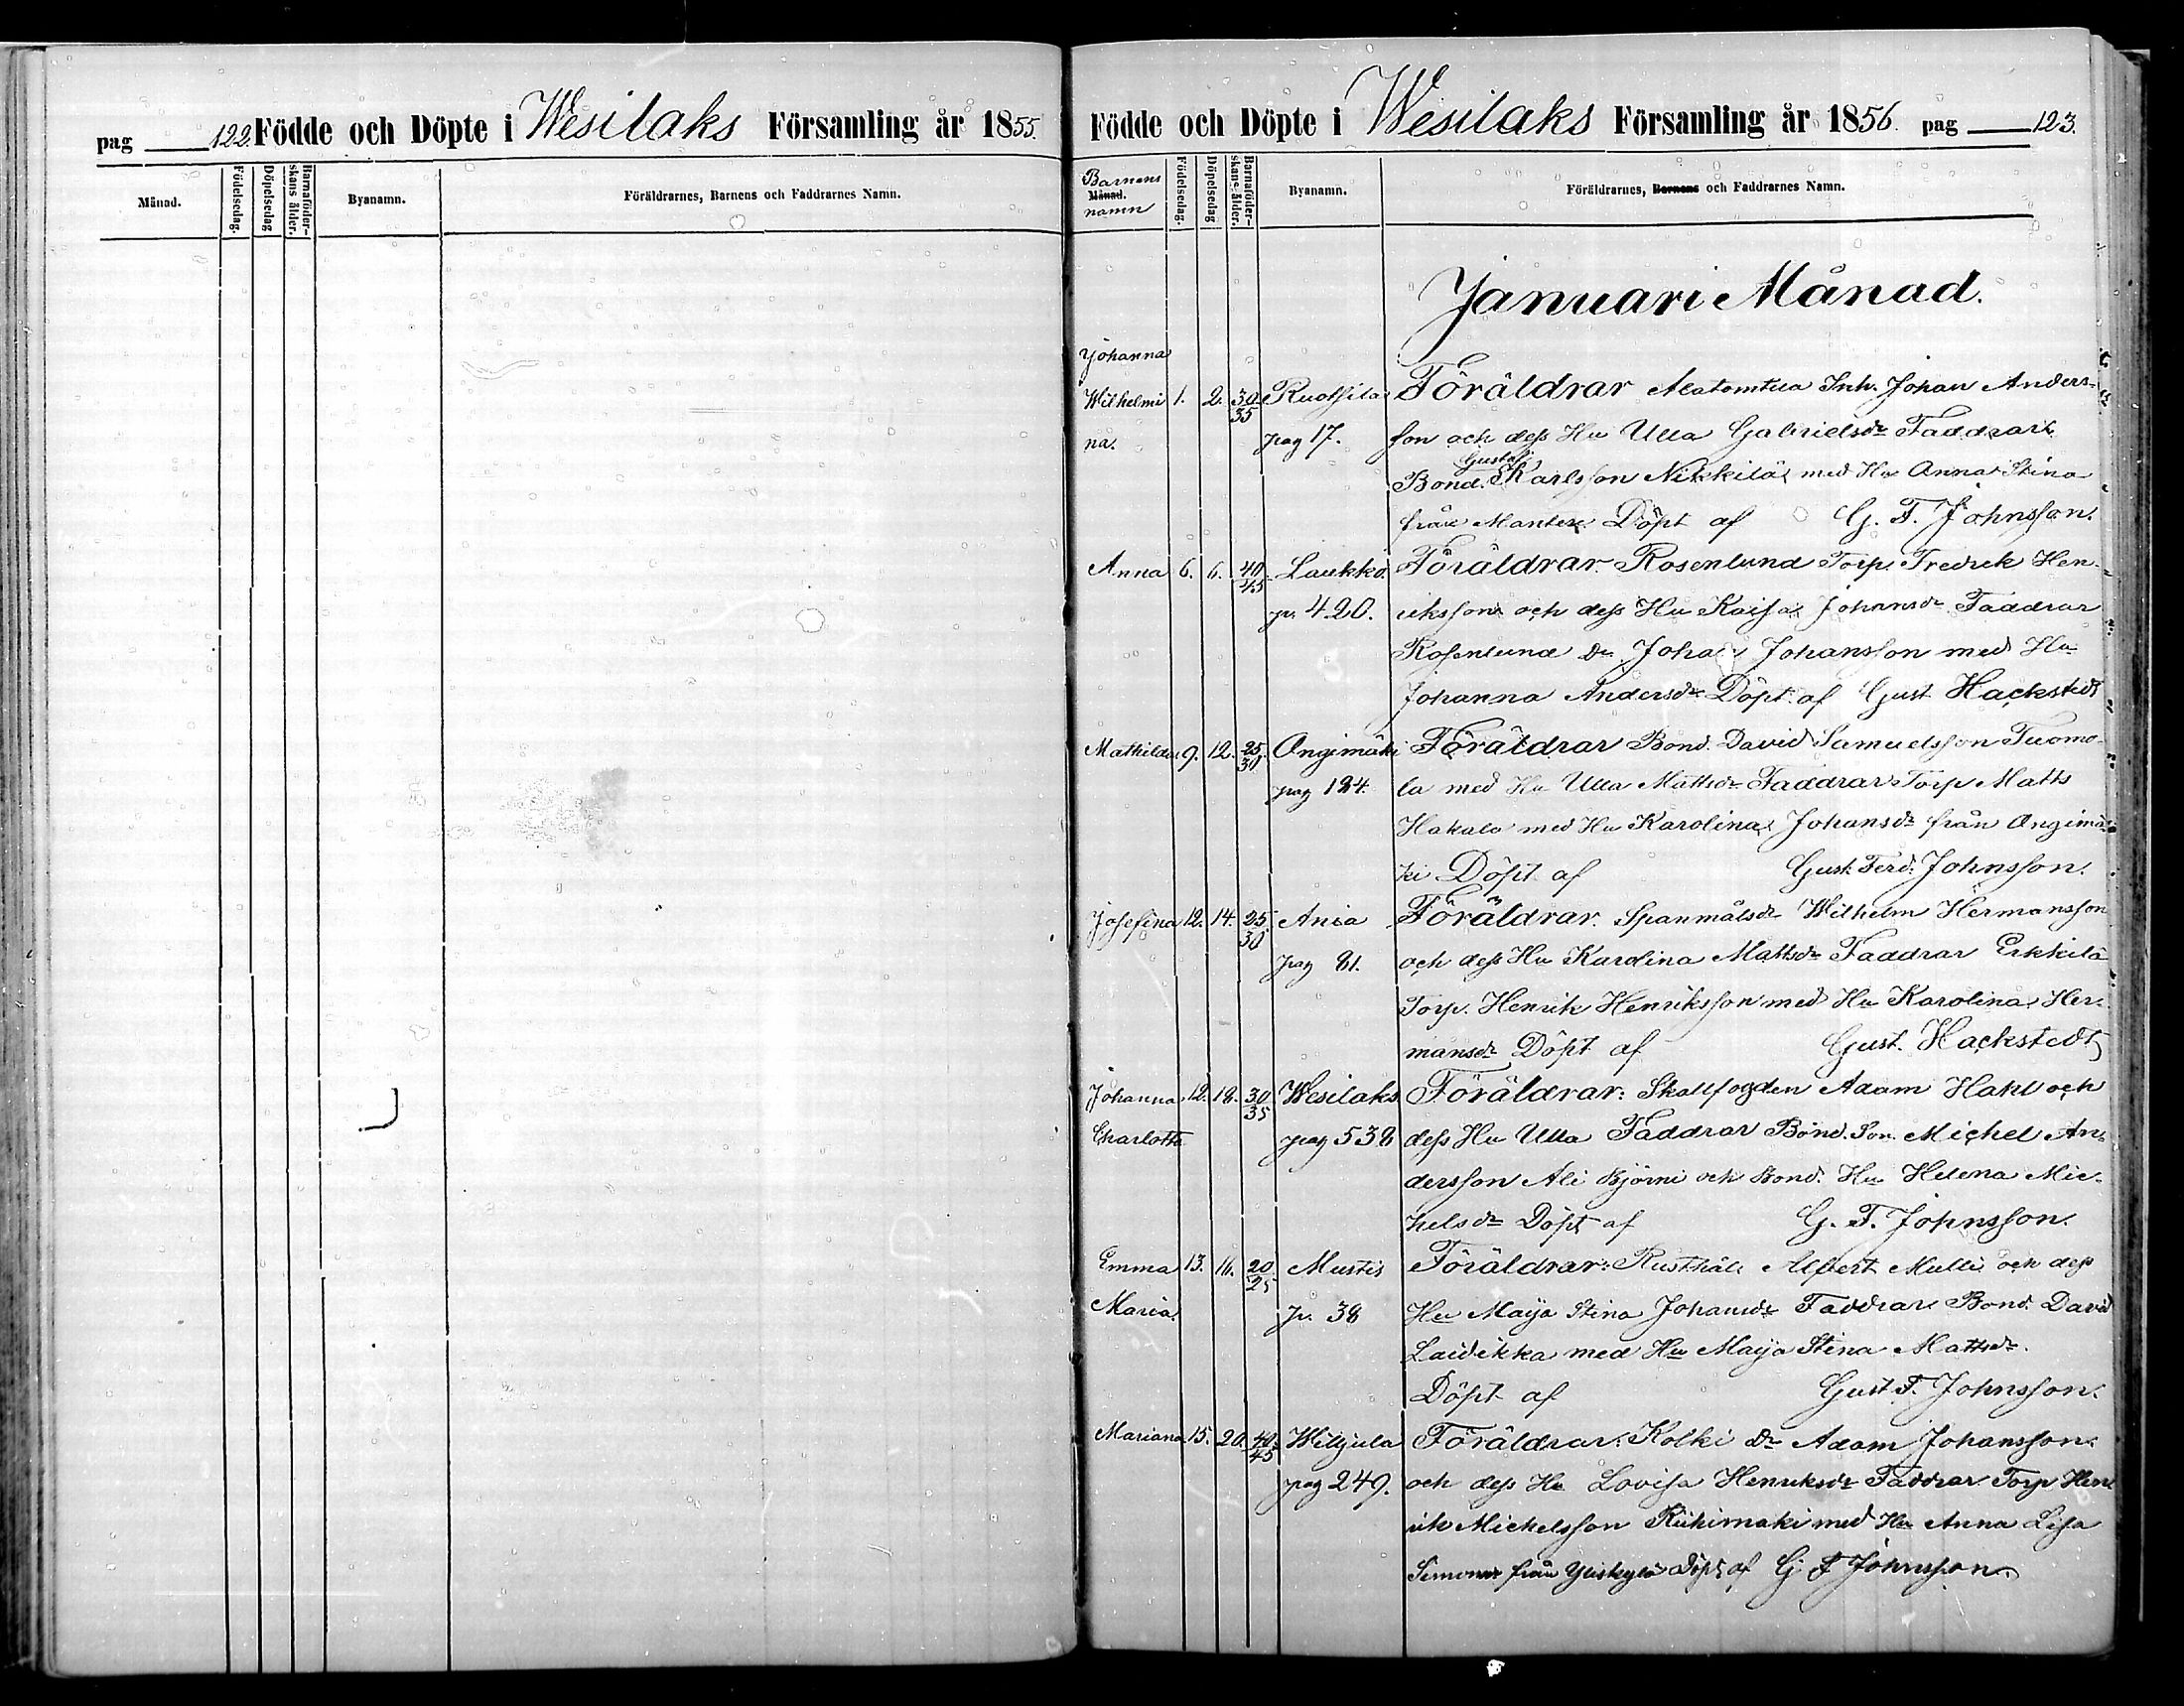 pag 122. Födde och Döpte i Wesilaks Församling år 1855.
Månad. Födelsedag. Döpelsedag Barnaföderskans ålder. Byanamn. Föräldrarnes, Barnens och Faddrarnes Namn.
Födde och Döpte i Wesilaks Församling år 1856. pag 123.
Barnens
Månad. Födelsedag. Döpelsedag Barnaföderskans ålder. Byanamn. Föräldrarnes, Barnens och Faddrarnes Namn.
namn
Januari Månad.
Johanna
Wilhelmi 1. 2. 30/35 Ruotsila Föräldrar Alatomtua Inh. Johan Anders-
na. pag 17. son och dess Hu Ulla Gabrielsdr Faddrar
Gustaf
Bond. Karlsson Nikkilä med Hu Anna Stina
från Mantere Döpt af G. F. Johnsson.
Anna 6. 6. 40/45 Laukko Föräldrar Rosenlund Torp. Fredrik Hen-
p. 420. riksson och dess Hu Kaisa Johansdr Faddrar
Rosenlund Dr Johan Johansson med Hu
Johanna Andersdr Döpt af Gust Hackstedt
Mathilda 9. 12. 25/30 Ongimäki Föräldrar Bond. David Samuelsson Tuomo-
pag 124. la med Hu Ulla Mattsdr Faddrar Torp Matts
Hakala med Hu Karolina Johansdr från Ongimä-
ki Döpt af Gust. Ferd. Johnsson.
Josefina 12. 14. 25/30 Ania Föräldrar. Spanmålsdr Wilhelm Hermansson
pag 81. och dess Hu Karolina Mattsdr Faddrar Erkkilä
Torp. Henrik Henriksson med Hu Karolina Her-
mansdr Döpt af Gust. Hackstedt
Johanna 12. 18. 30/35 Wesilaks Föräldrar: Skallfogden Adam Hahl och
Charlotta pag 538 dess Hu Ulla Faddrar Bond. Son. Michel An-
dersson Ali Björni och Bond. Hu Helena Mic-
helsdr Döpt af G. F. Johnsson.
Emma 13. 16. 20/25 Mustis Föräldrar: Rusthåll. Albert Mulli och dess
Maria. p. 38 Hu Maija Stina Johansdr Faddrar Bond. David
Laidikka med Hu Maija Stina Mattsdr.
Döpt af Gust F. Johnsson.
Mariana 15. 20. 40/45 Wiljula Föräldrar. Kolki Dr Adam Johansson.
pag 249. och dess Hu Lovisa Henriksdr Faddrar Torp Hen
rik Michelsson Riihimaki med Hu Anna Lisa
från Döpt af G F Johnsson.